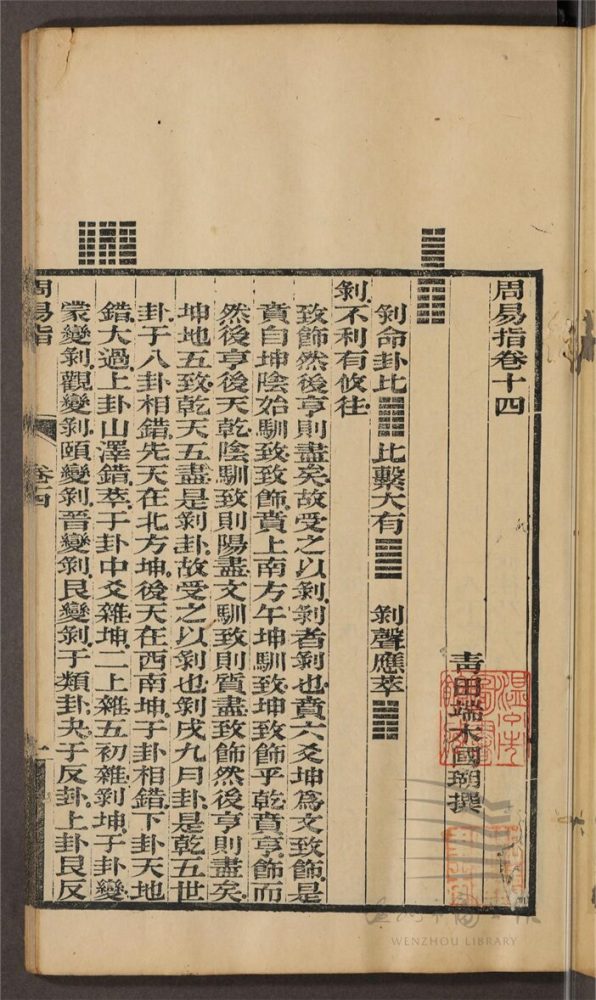 周易指卷十四
青田端木國瑚撰
剝命卦比䷇比繫大有䷍剝聲應萃䷬
剝不利有攸往
致飾然後亨則盡矣故受之以剝剝者剝也賁六爻坤爲文致飾是
賁自坤陰始馴致致飾賁上南方午坤馴致坤致飾乎乾賁亨飾而
然後亨後天乾陰馴致則陽盡文馴致則質盡致飾然後亨則盡矣
坤地五致乾天五盡是剝卦故受之以剝也剝戌九月卦是乾五世
卦子八卦相錯先天在北方坤後天在西南坤子卦相錯下卦天地
錯大過上卦山澤錯萃子卦中爻雜坤二上雜五初雜剝坤子卦變
蒙變剝觀變剝頤變剝晉變剝艮變剝子類卦夬子反卦上卦艮反
周易指
卷十四
一
WENZHOU LIBRARY